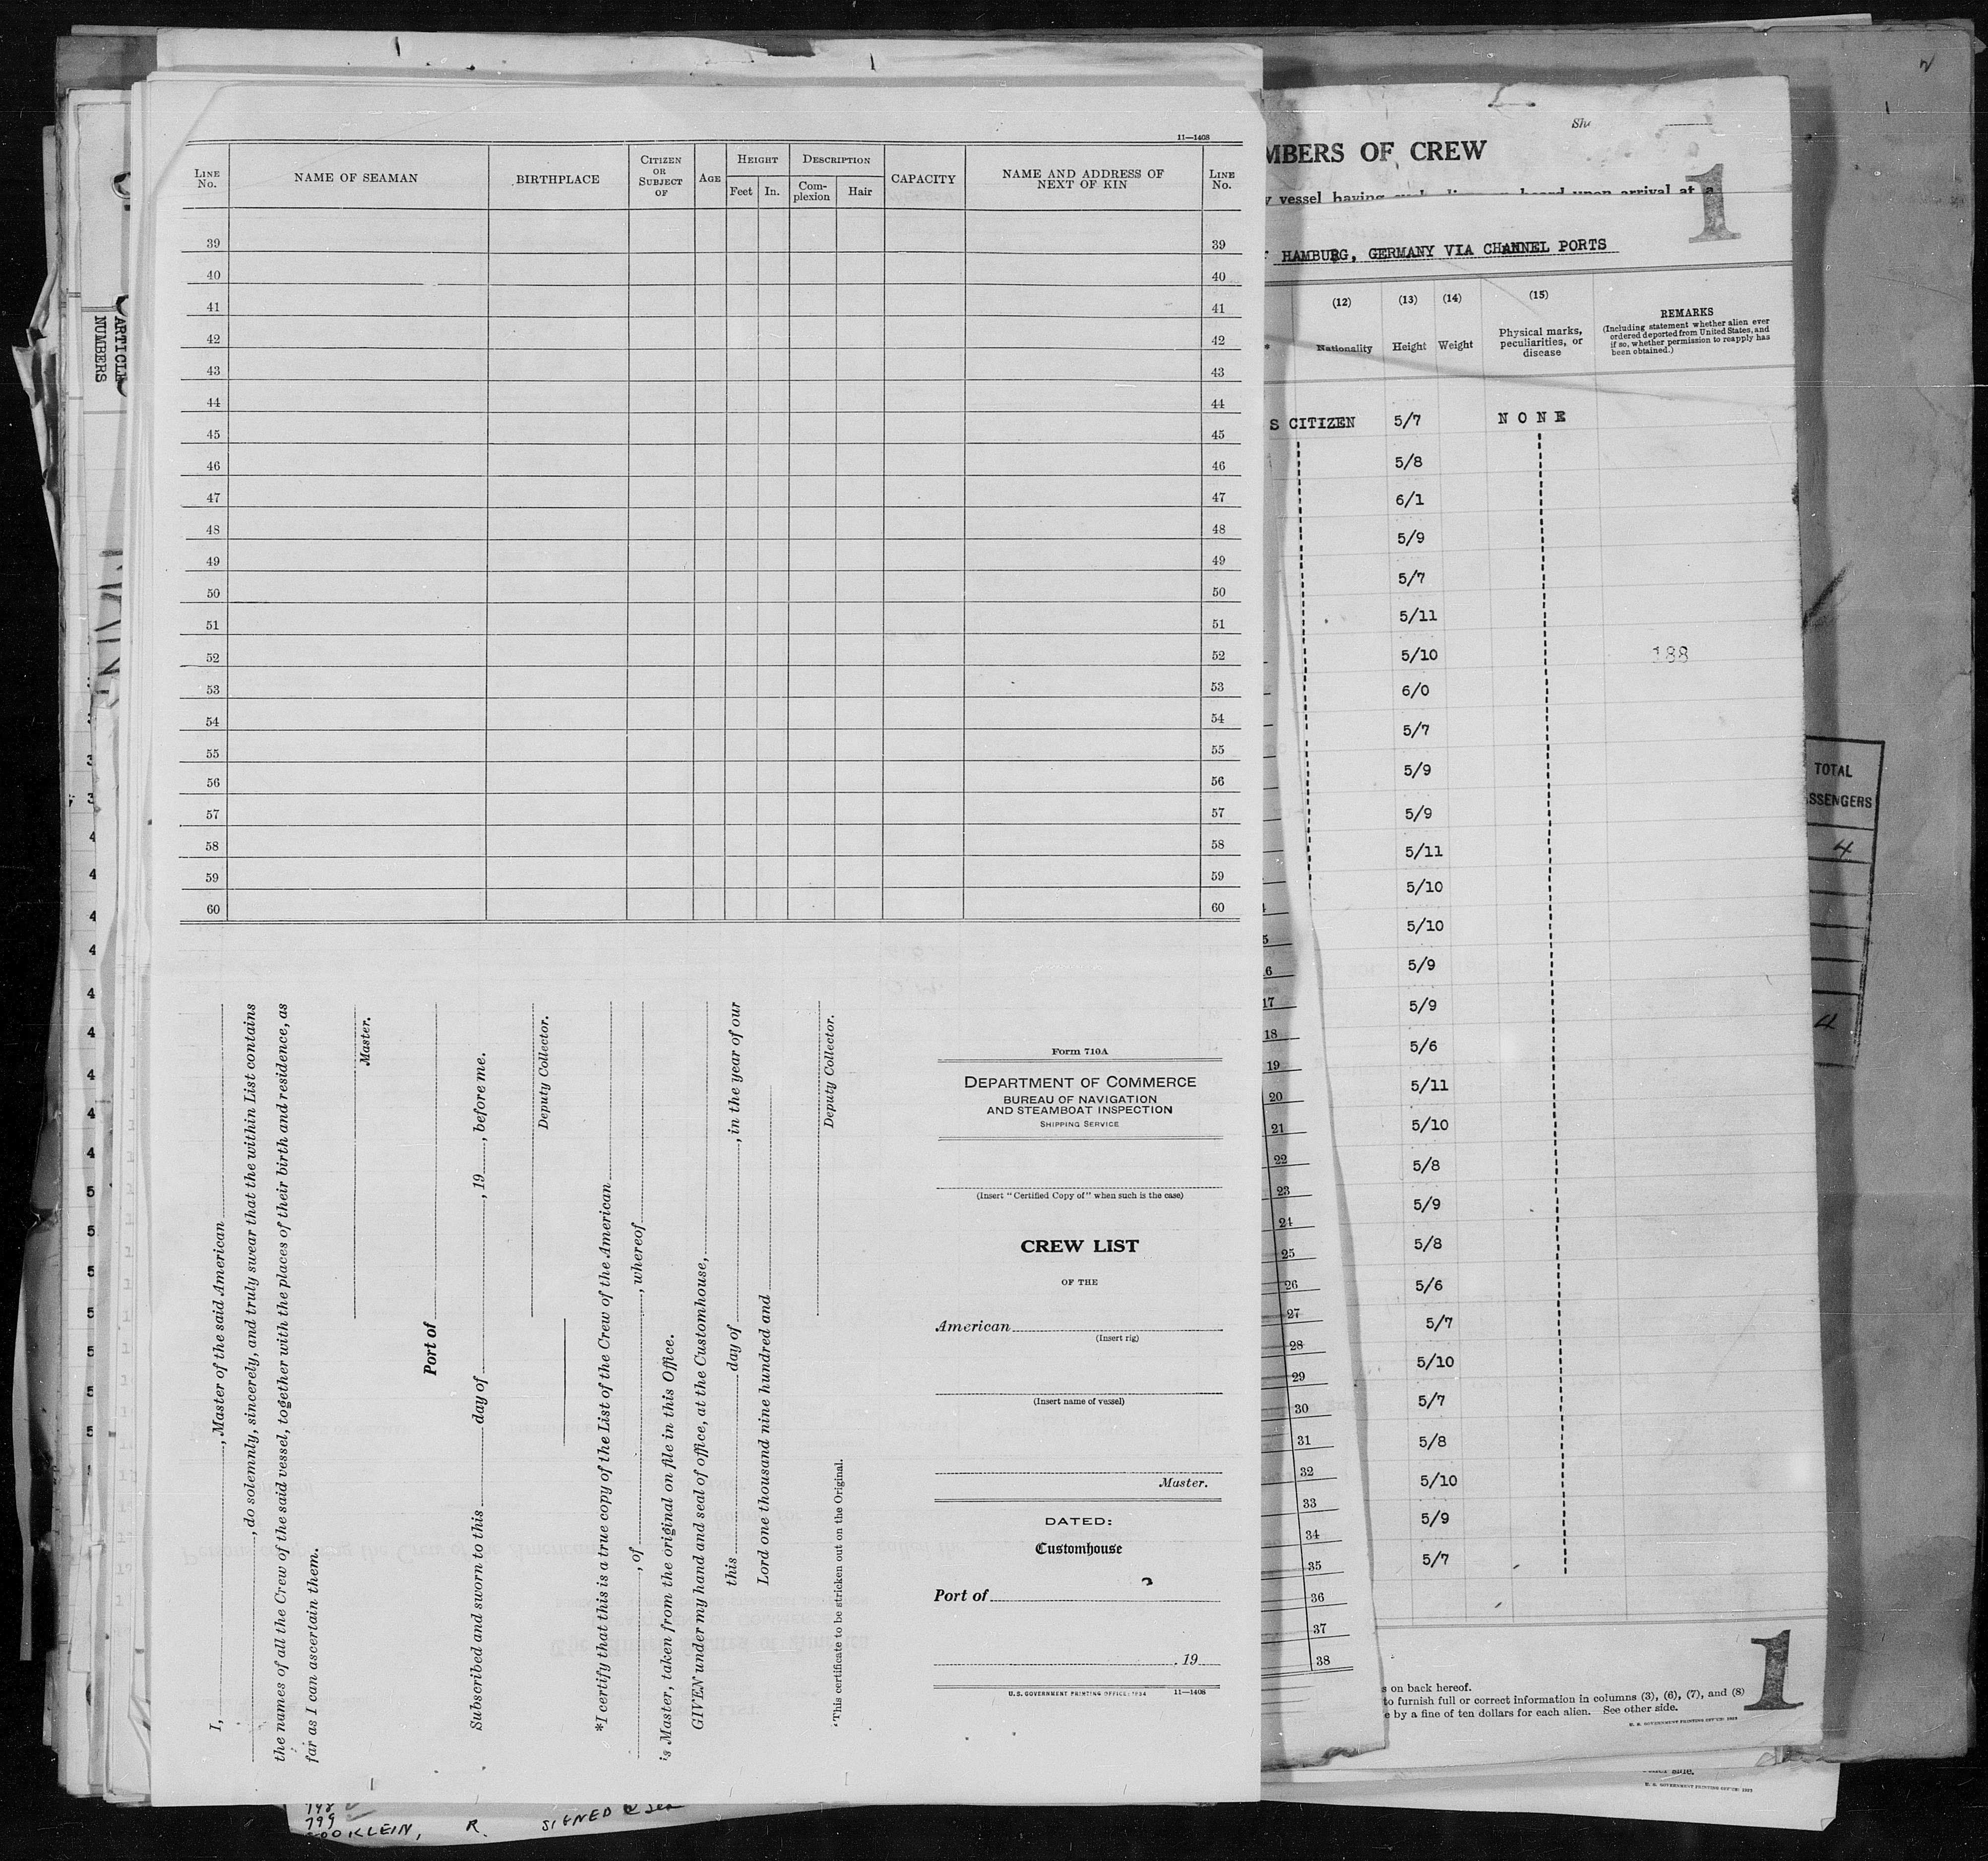 11—1408
LINE No. NAME OF SEAMAN BIRTHPLACE CITIZEN OR SUBJECT OF AGE HEIGHT Feet In. DESCRIPTION Com-plexion Hair CAPACITY NAME AND ADDRESS OF NEXT OF KIN LINE No.
39 39
40 40
41 41
42 42
43 43
44 44
45 45
46 46
47 47
48 48
49 49
50 50
51 51
52 52
53 53
54 54
55 55
56 56
57 57
58 58
59 59
60 60
I, , Master of the said American
, do solemnly, sincerely, and truly swear that the within List contains
the names of all the Crew of the said vessel, together with the places of their birth and residence, as
far as I can ascertain them.
Master.
Port of
Subscribed and sworn to this day of , 19 , before me.
Deputy Collector.
*I certify that this is a true copy of the List of the Crew of the American
, of , whereof
is Master, taken from the original on file in this Office.
GIVEN under my hand and seal of office, at the Customhouse,
this day of , in the year of our
Lord one thousand nine hundred and
Deputy Collector.
*This certificate to be stricken out on the Original.
Form 710A
DEPARTMENT OF COMMERCE
BUREAU OF NAVIGATION
AND STEAMBOAT INSPECTION
SHIPPING SERVICE
(Insert "Certified Copy of" when such is the case)
CREW LIST
OF THE
American
(Insert rig)
(Insert name of vessel)
Master.
DATED:
Customhouse
Port of
, 19
U.S. GOVERNMENT PRINTING OFFICE: 1934 11—1408
MBERS OF CREW
1
vessel having board upon arrival at a
HAMBURG, GERMANY VIA CHANNEL PORTS
(12) (13) (14) (15)
Nationality Height Weight Physical marks, peculiarities, or disease
REMARKS
(Including statement whether alien ever
ordered deported from United States, and
if so, whether permission to reapply has
been obtained.)
S CITIZEN 5/7 NONE
5/8
6/1
5/9
5/7
5/11
5/10 188
6/0
5/7
5/9
5/9
5/11
5/10
5/10
5/9
5/9
5/6
5/11
5/10
5/8
5/9
5/8
5/6
5/7
5/10
5/7
5/8
5/10
5/9
5/7
17
18
19
20
21
22
23
24
25
26
27
28
29
30
31
32
33
34
35
36
37
38
s on back hereof.
to furnish full or correct information in columns (3), (6), (7), and (8)
e by a fine of ten dollars for each alien. See other side.
1
ARTICLE
NUMBERS
TOTAL
SSENGERS
4
4
799
KLEIN, R. SIGNED